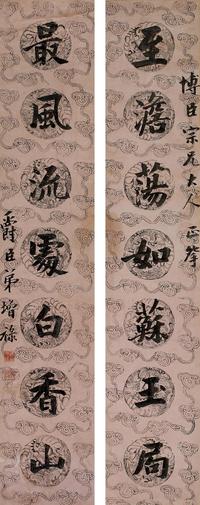 博臣宗兄大人正掌
至澹蕩如蘇玉局
最風流處白香山
爵臣弟增祿